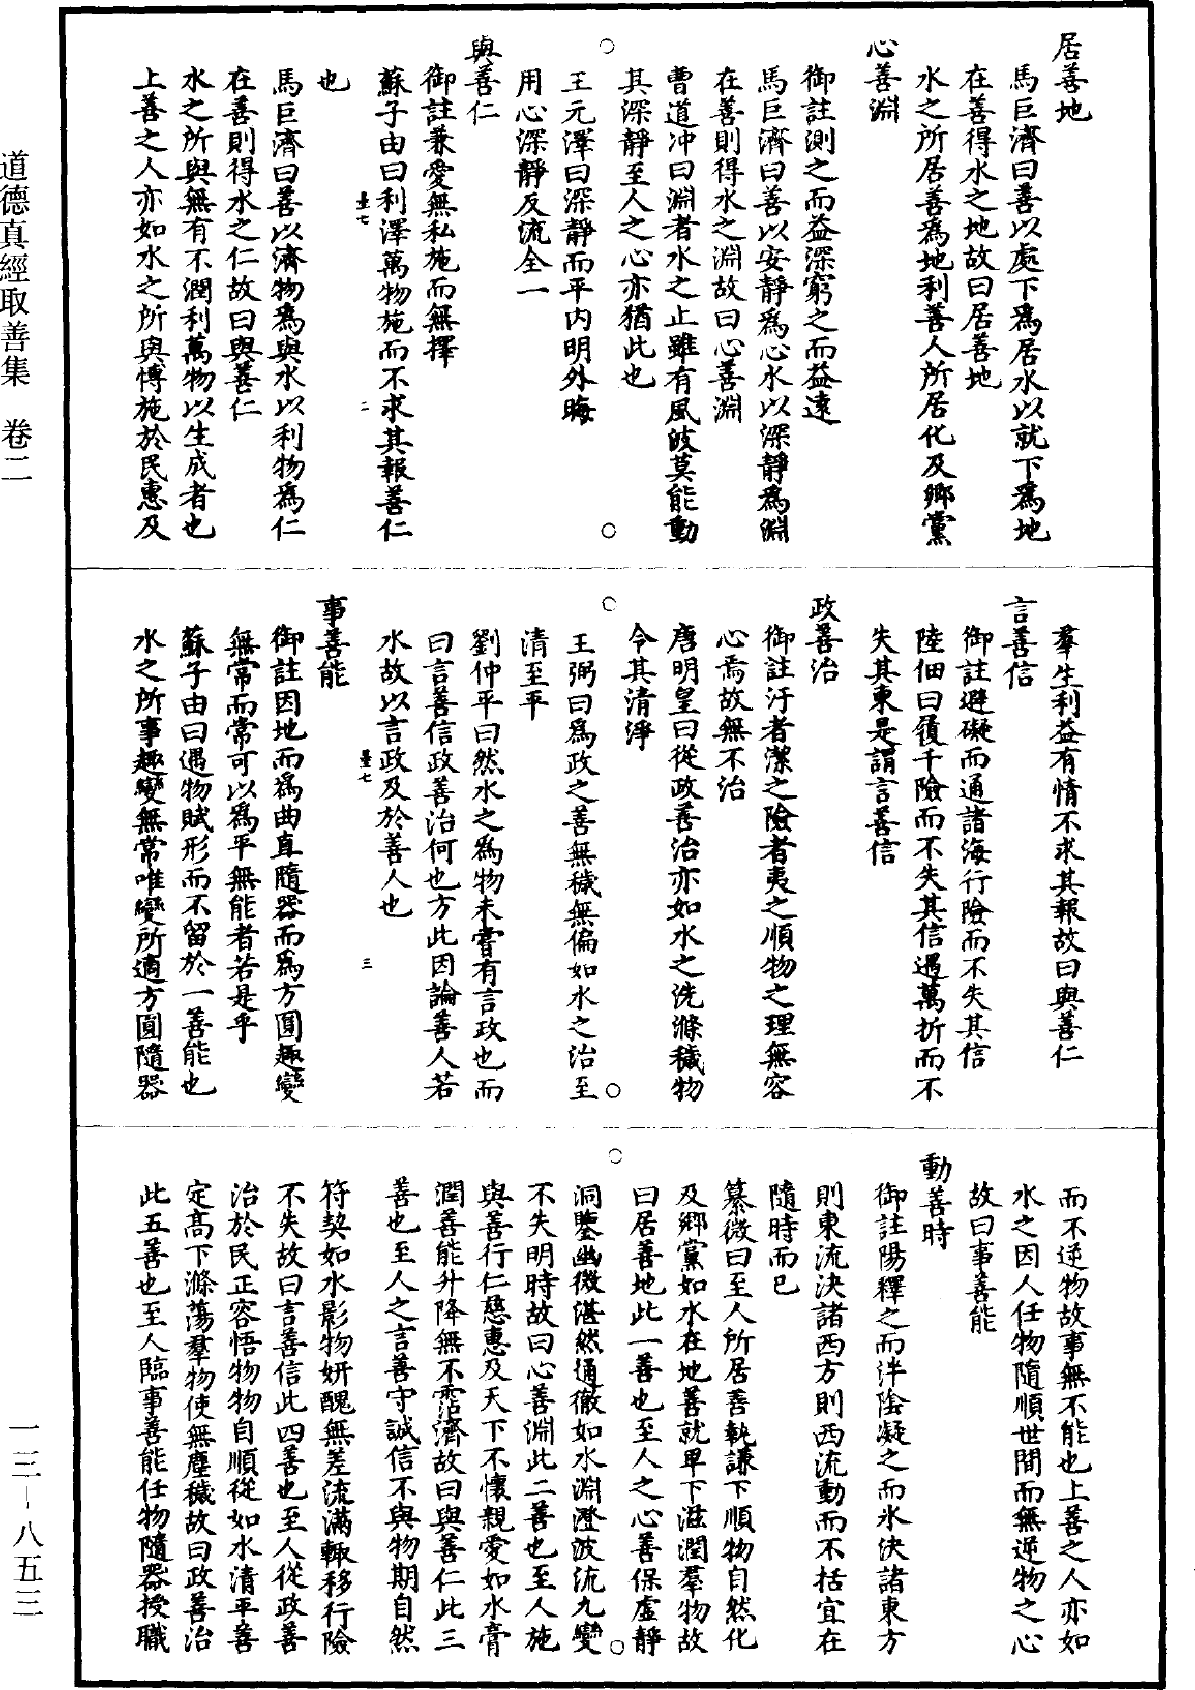 居善地
馬巨濟曰善以處下爲居水以就下爲地
在善得水之地故曰居善地
水之所居善爲地利善人所居化及鄉黨
心善淵
御註測之而益深窮之而益遠
馬巨濟曰善以安靜爲心水以深靜爲淵
在善則得水之淵故曰心善淵
曹道冲曰淵者水之止雖有風波莫能動
其深靜至人之心亦猶此也
王元澤曰深靜而平內明外晦
用心深靜反流全一
與善仁
御註兼愛無私施而無擇
蘇子由曰利澤萬物施而不求其報善仁
也
馬巨濟曰善以濟物爲與水以利物爲仁
在善則得水之仁故曰與善仁
水之所與無有不潤利萬物以生成者也
上善之人亦如水之所與愽施於民惠及
羣生利益有情不求其報故曰與善仁
言善信
御註避礙而通諸海行險而不失其信
陸佃曰履千險而不失其信遇萬折而不
失其東是謂言善信
政善治
御註汙者潔之險者夷之順物之理無容
心焉故無不治
唐明皇曰從政善治亦如水之洗滌穢物
令其清淨
王弼曰爲政之善無穢無偏如水之治至
清至平
劉仲平曰然水之爲物未嘗有言政也而
曰言善信政善治何也方此因論善人若
水故以言政及於善人也
事善能
御註因地而爲曲直隨器而爲方圓趣變
無常而常可以爲平無能者若是乎
蘇子由曰遇物賦形而不留於一善能也
水之所事趣變無常唯變所適方圓隨器
而不逆物故事無不能也上善之人亦如
水之因人任物隨順世間而無逆物之心
故曰事善能
動善時
御註陽釋之而泮陰凝之而氷決諸東方
則東流決諸西方則西流動而不括宜在
隨時而已
纂微曰至人所居善執謙下順物自然化
及鄉黨如水在地善就卑下滋潤羣物故
曰居善地此一善也至人之心善保虛靜
洞鑒幽微湛然通徹如水淵澄波流九變
不失明時故曰心善淵此二善也至人施
與善行仁慈惠及天下不懷親愛如水膏
潤善能升降無不霑濟故曰與善仁此三
善也至人之言善守誠信不與物期自然
符契如水影物妍醜無差流滿輙移行險
不失故曰言善信此四善也至人從政善
治於民正容悟物物自順從如水清平善
定高下滌蕩羣物使無塵穢故曰政善治
此五善也至人臨事善能任物隨器授職
道德真經取善集　卷二
一三－八五三